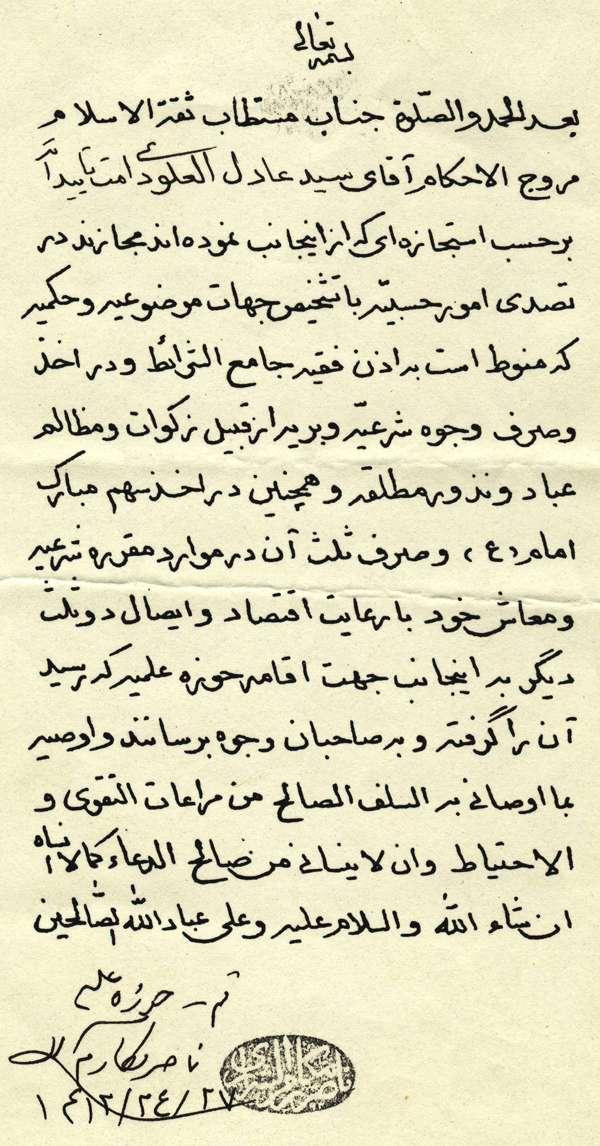 بسمه تعالی
بعد الحمد والصّلوة جناب مستطاب ثقة الاسلام
مروج الاحکام آقای سید عادل العلوی دامت تاییداته
برحسب استجازه‌ای که از اینجانب نموده‌اند مجازند در
تصدی امور حسبیّه با تشخیص جهات موضوعیه و حکمیه
که منوط است به اذن فقیه جامع الشرائط و در اخذ
وصرف وجوه شرعیّه و بریه از قبیل زکوات و مظالم
عباد و نذور مطلقه و همچنین در اخذ سهم مبارک
امام (ع) ، وصرف ثلث آن در موارد مقرره شرعیه
و معاش خود با رعایت اقتصاد و ایصال دو ثلث
دیگر به اینجانب جهت اقامه حوزه علمیه که رسید
آن را گرفته و به صاحبان وجوه برسانند و اوصیه
بما اوصانی به السلف الصالح من مراعات التقوی و
الاحتیاط وان لاینسانی من صالح الدعاء کما لا انساه
ان شاء الله والسلام علیه وعلی عباد الله الصّالحین
قم - حوزه علمیه
ناصر مکارم
۲۷/۲۴/